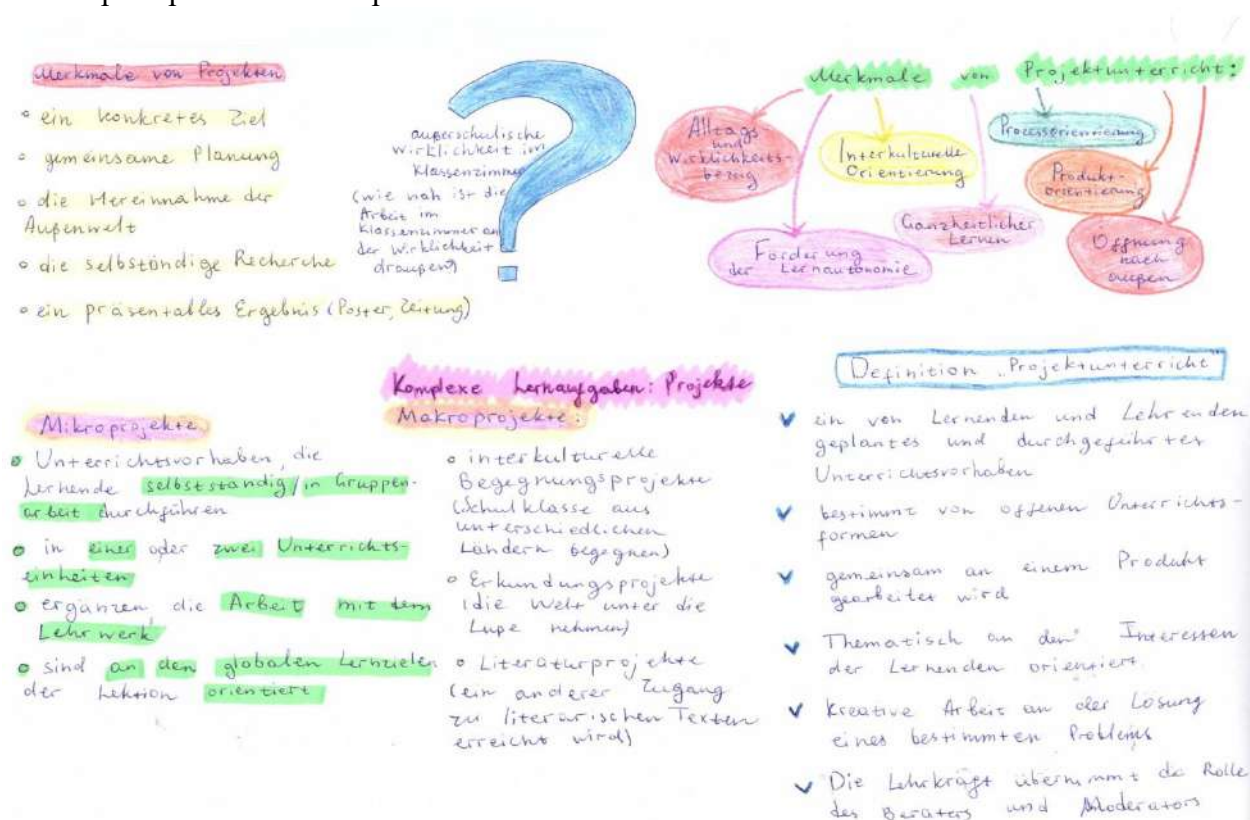 Merkmale von Projekten
ein konkretes Ziel
gemeinsame Planung
die Hereinnahme der
Außenwelt
die selbständige Recherche
ein präsentables Ergebnis (Poster, Zeitung)
außerschulische
Wirklichkeit im
Klassenzimmer
(wie nah ist die
Arbeit im
Klassenzimmer an
der Wirklichkeit
draußen)
?
Merkmale von Projektunterricht:
Alltags
und
Wirklichkeits-
bezug
Förderung
der Lernautonomie
Interkulturelle
Orientierung
Ganzheitlicher
Lernen
Prozessorientierung
Produkt-
orientierung
Öffnung
nach
außen
Komplexe Lernaufgaben: Projekte
Mikroprojekte
Unterrichtsvorhaben, die
Lernende selbstständig/in Gruppen-
arbeit durchführen
in einer oder zwei Unterrichts-
einheiten
ergänzen die Arbeit mit dem
Lehrwerk
sind an den globalen Lernzielen
der Lektion orientiert
Makroprojekte:
interkulturelle
Begegnungsprojekte
(Schulklasse aus
unterschiedlichen
Ländern begegnen)
Erkundungsprojekte
(die Welt unter die
Lupe nehmen)
Literaturprojekte
(ein anderer Zugang
zu literarischen Texten
erreicht wird)
Definition „Projektunterricht"
ein von Lernenden und Lehrenden
geplantes und durchgeführtes
Unterrichtsvorhaben
bestimmt von offenen Unterrichts-
formen
gemeinsam an einem Produkt
gearbeitet wird
Thematisch an den Interessen
der Lernenden orientiert
kreative Arbeit an der Lösung
eines bestimmten Problems
Die Lehrkraft übernimmt die Rolle
des Beraters und Moderators